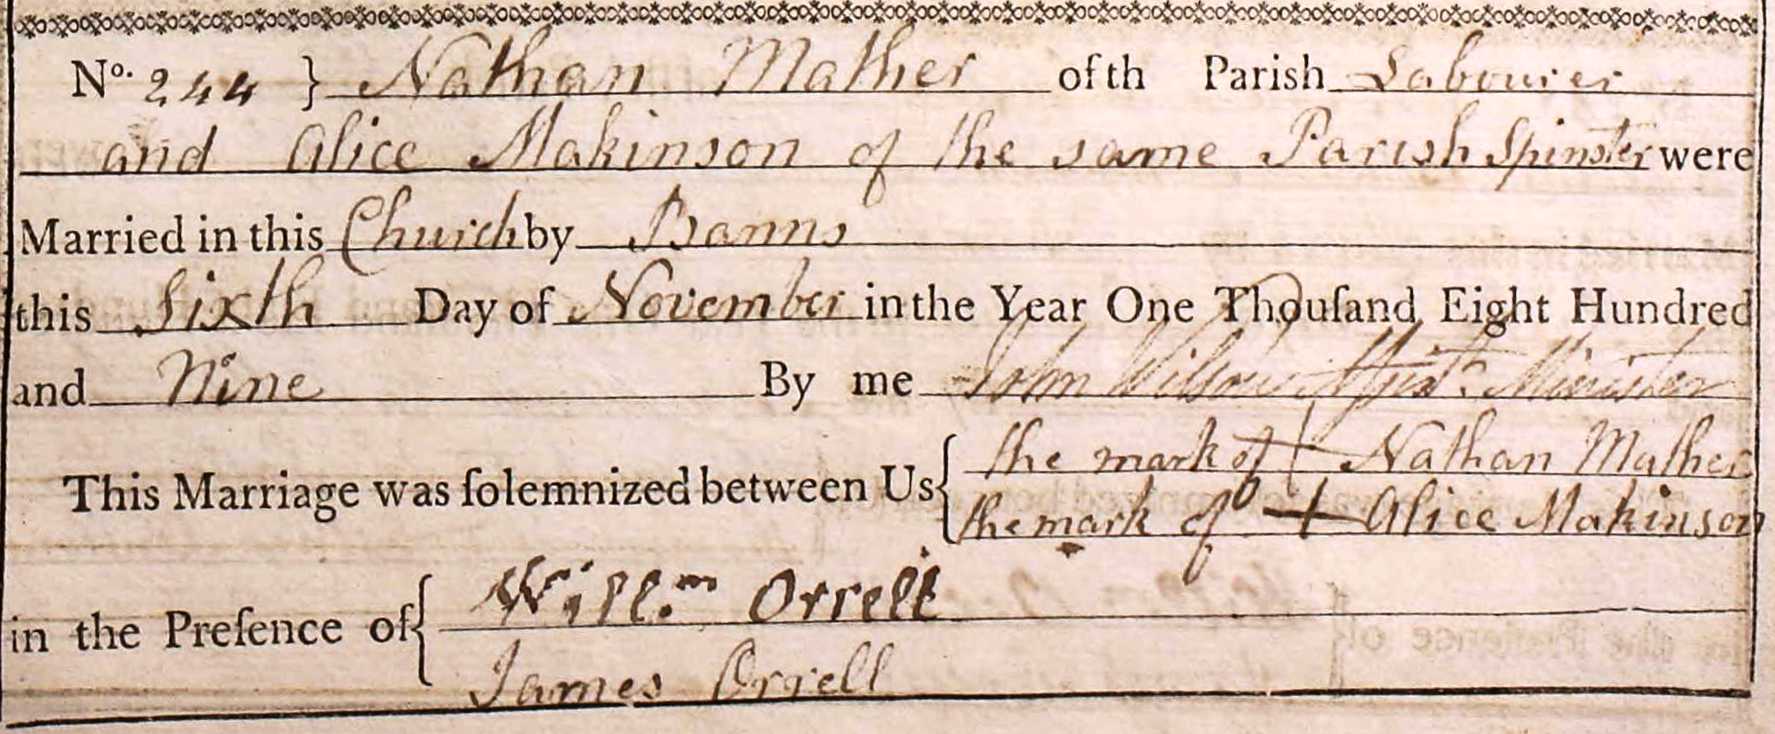 No. 244 } Nathan Mather of th Parish Labourer
and Alice Makinson of the same Parish Spinster were
Married in this Church by Banns
this Sixth Day of November in the Year One Thouſand Eight Hundred
and Nine By me John Wilson Minister
This Marriage was ſolemnized between Us { the mark of + Nathan Mather
the mark of + Alice Makinson
in the Preſence of { Will.m Orrell
James Orrell